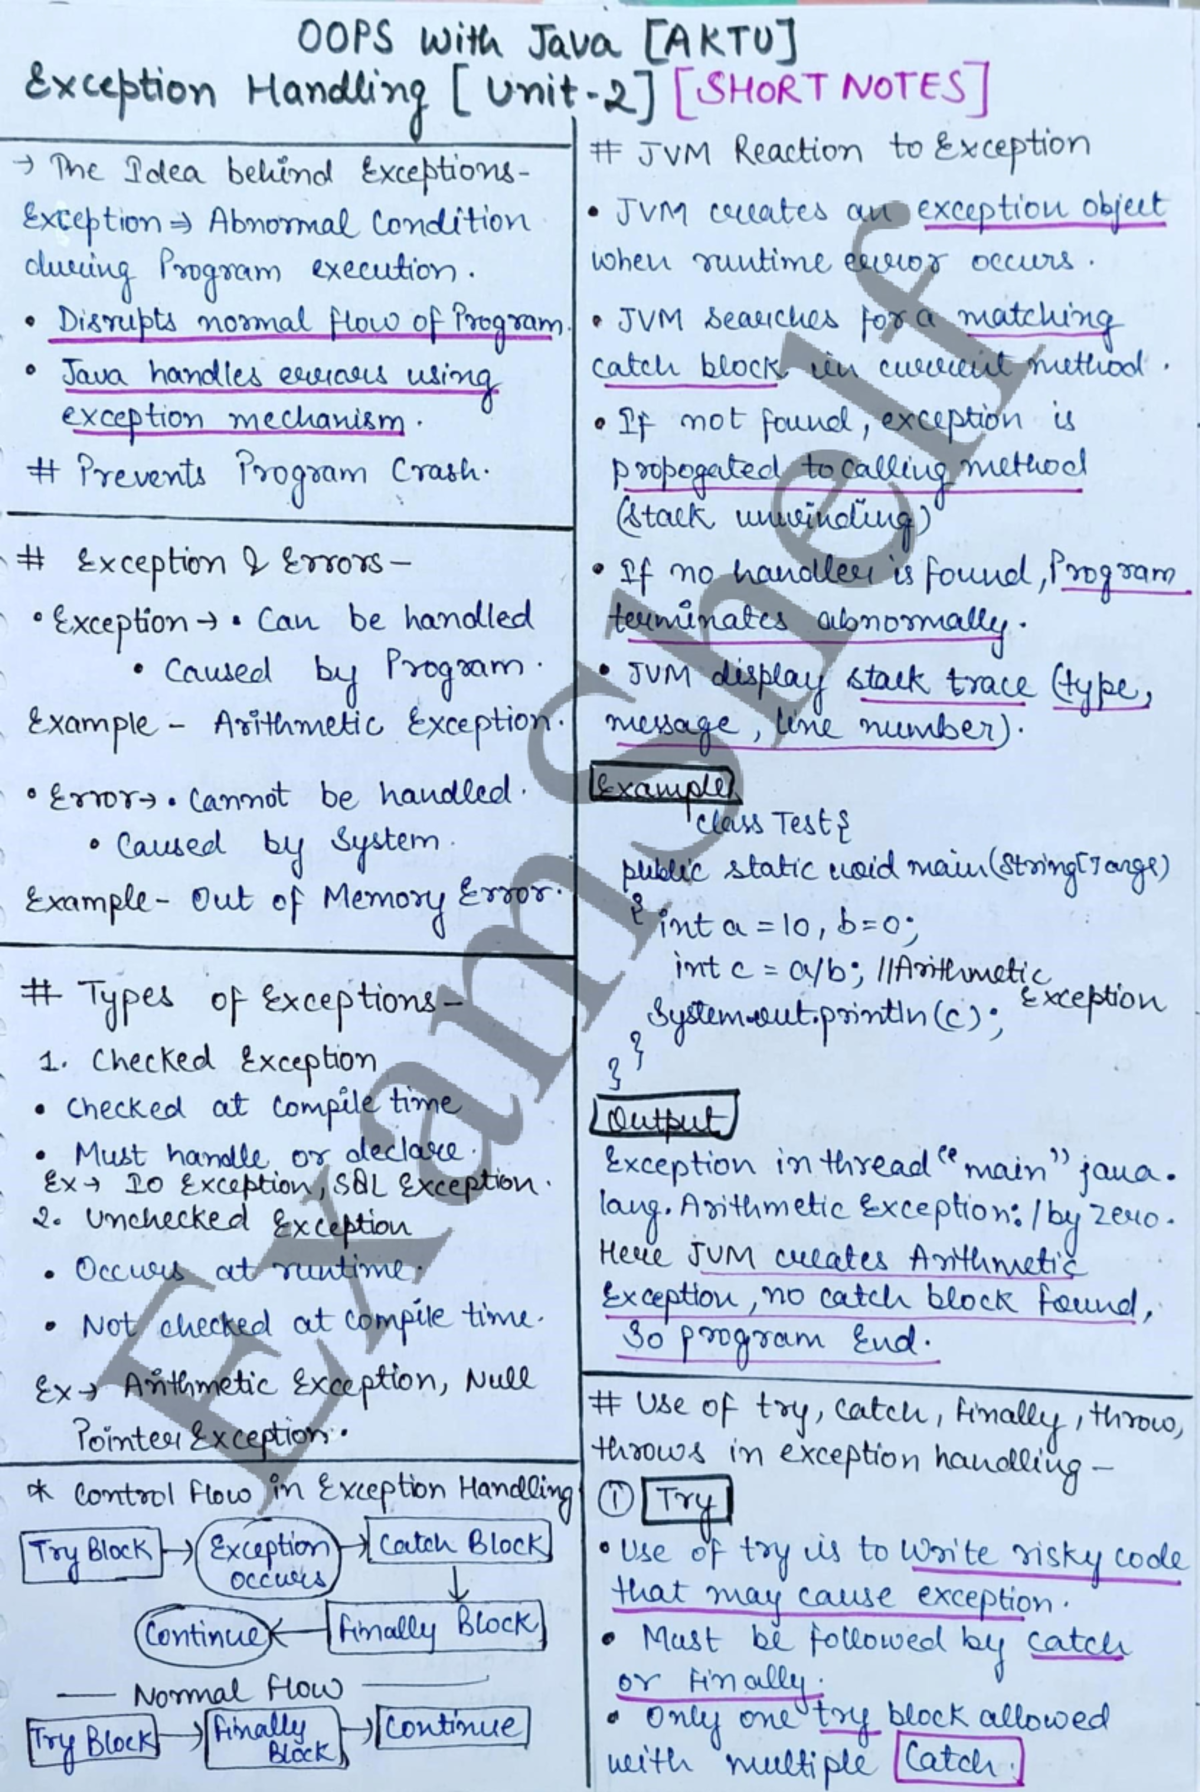 OOPS with Java [AKTU]
Exception Handling [Unit-2] [SHORT NOTES]
→ The Idea behind Exceptions-
Exception ⇒ Abnormal Condition
during Program execution.
• Disrupts normal flow of Program.
• Java handles errors using
exception mechanism.
# Prevents Program Crash.
# Exception & Errors-
• Exception → • Can be handled
• Caused by Program.
Example - Arithmetic Exception.
• Error → • Cannot be handled.
• Caused by System.
Example - Out of Memory Error.
# Types of Exceptions-
1. Checked Exception
• Checked at compile time
• Must handle or declare.
Ex → IO Exception, SQL Exception.
2. Unchecked Exception
• Occurs at runtime.
• Not checked at compile time.
Ex → Arithmetic Exception, Null
Pointer Exception.
* Control Flow in Exception Handling
Try Block → Exception occurs → Catch Block
↓
Continue ← Finally Block
— Normal Flow —
Try Block → Finally Block → Continue
# JVM Reaction to Exception
• JVM creates an exception object
when runtime error occurs.
• JVM searches for a matching
catch block in current method.
• If not found, exception is
propogated to calling method
(stack unwinding)
• If no handler is found, Program
terminates abnormally.
• JVM display stack trace (type,
message, line number).
Example
class Test{
public static void main(String[] args)
{ int a = 10, b = 0;
int c = a/b; //Arithmetic
Exception
System.out.println(c);
}
}
Output
Exception in thread "main" java.
lang. Arithmetic Exception: / by zero.
Here JVM creates Arithmetic
Exception, no catch block found,
So program End.
# Use of try, catch, finally, throw,
throws in exception handling -
① Try
• Use of try is to write risky code
that may cause exception.
• Must be followed by catch
or finally.
• Only one try block allowed
with multiple Catch.
ExamShelf